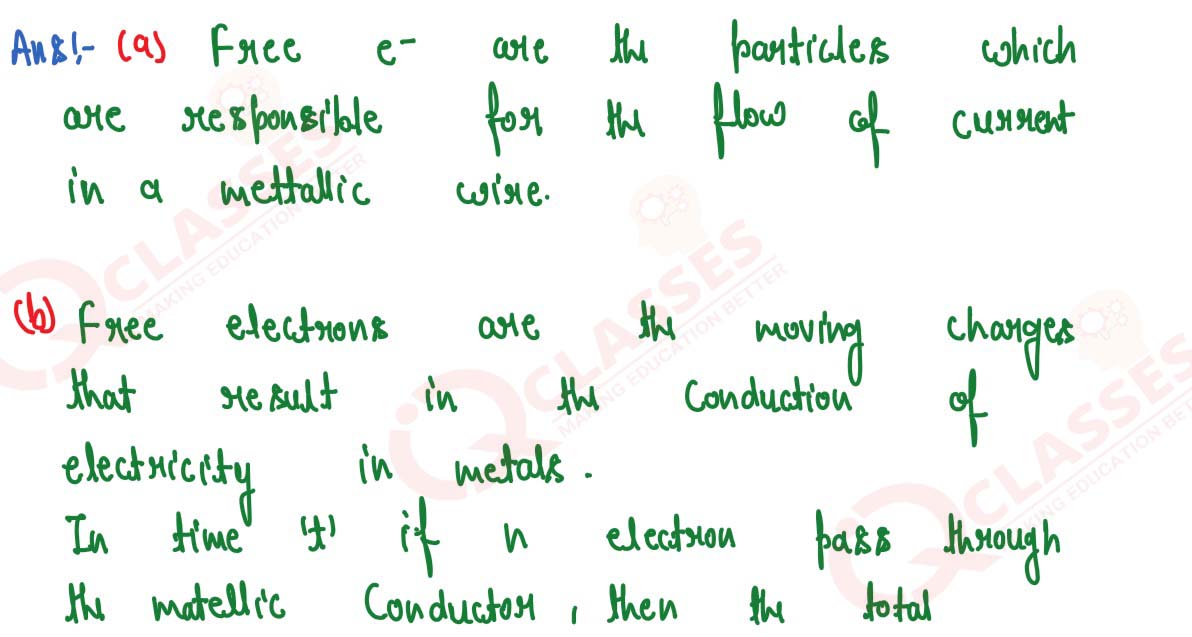 Ans:- (a) Free e⁻ are the particles which
are responsible for the flow of current
in a mettallic wire.
(b) Free electrons are the moving charges
that result in the Conduction of
electricity in metals.
In time 't' if n electron pass through
the matellic Conductor, then the total
CLASSES
MAKING EDUCATION BETTER
CLASSES
MAKING EDUCATION BETTER
CLASSES
MAKING EDUCATION BETTER